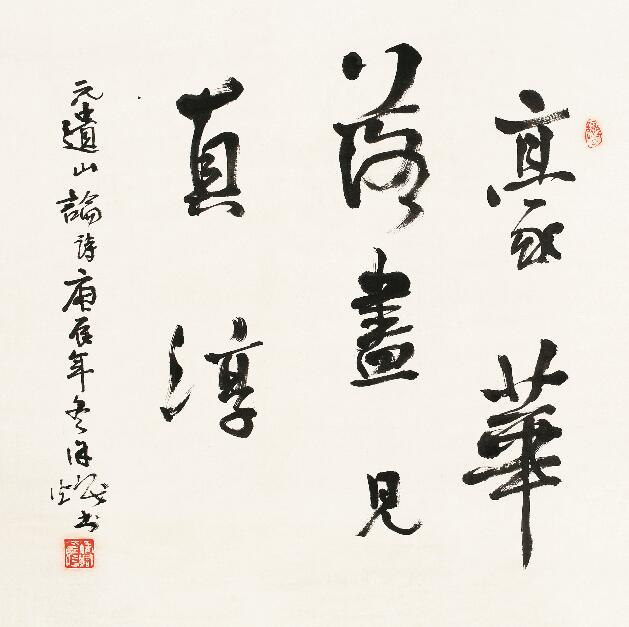 豪華
落盡見
真淳
元遺山論詩庚辰年冬徐
書